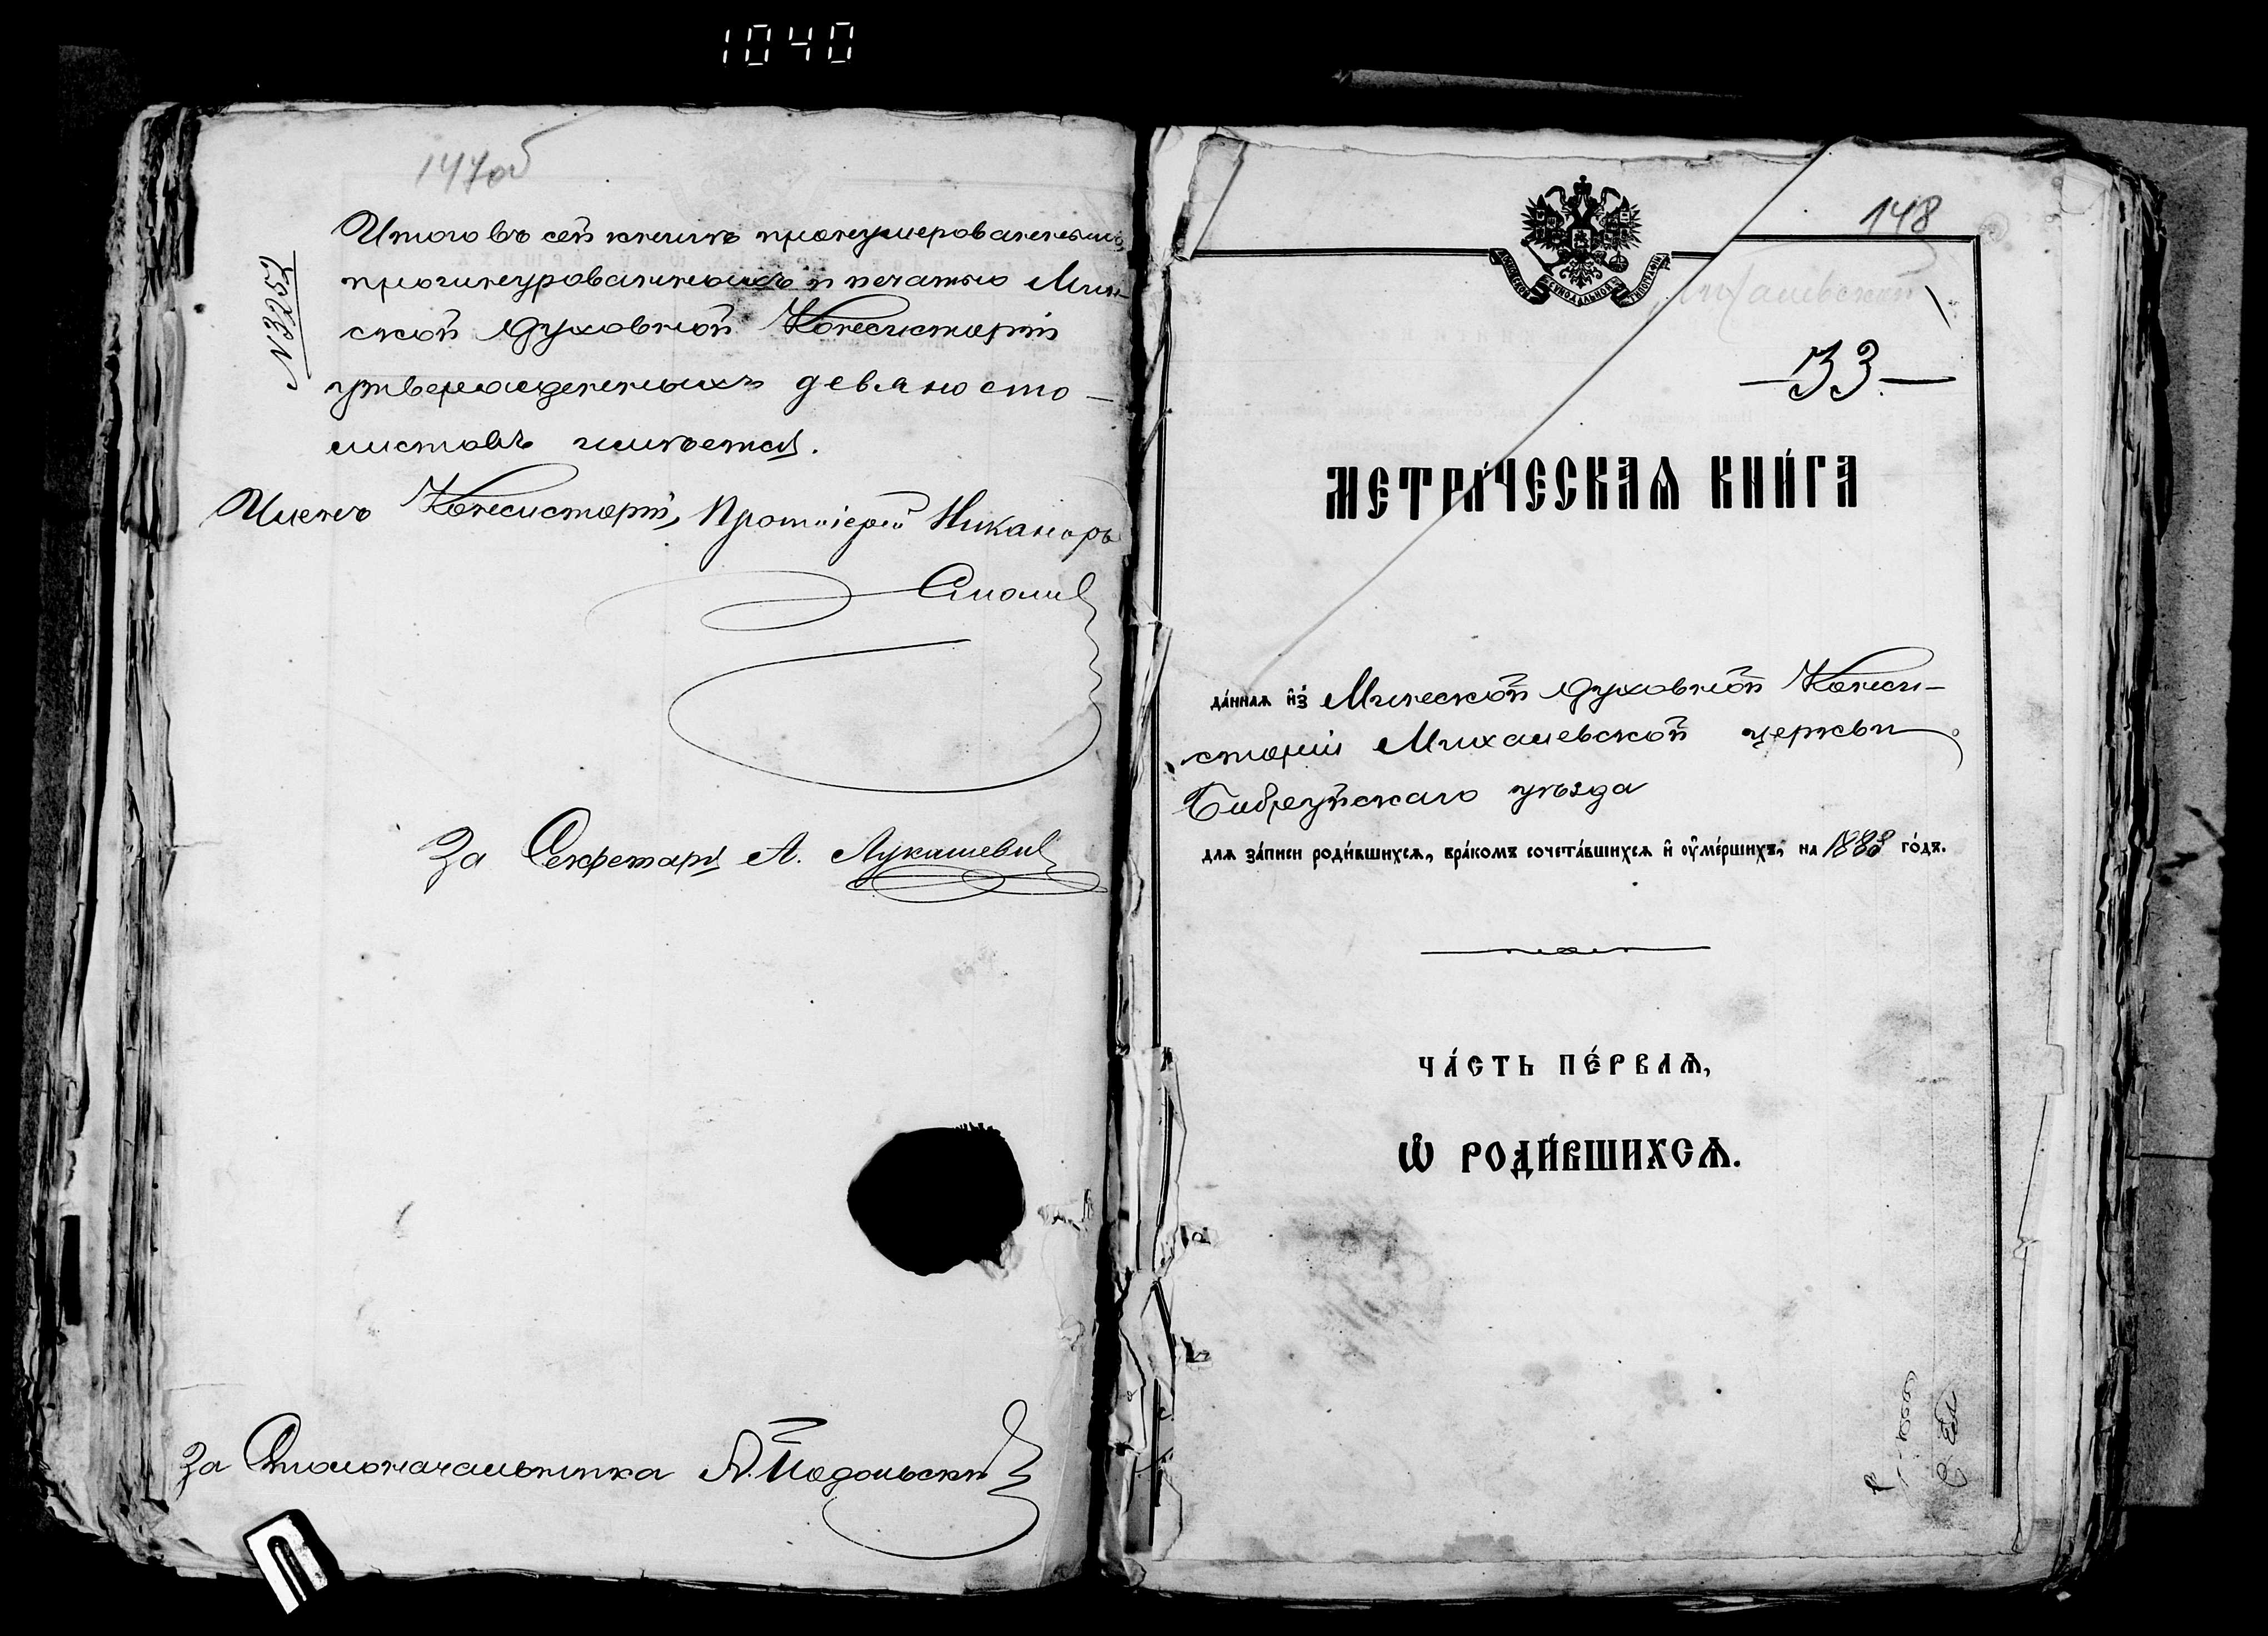 1040
147об
N 3252
Итого въ сей книгѣ пронумерованныхъ,
прошнурованныхъ и печатью Мин-
ской Духовной Консисторіи
утвержденныхъ девяносто —
листовъ имѣется.
Членъ Консисторіи, Протоіерей Никаноръ
Смолич
За Секретаря А. Лукашевич
За Столоначальника А. Подольскій
148
МОСКОВСКОЙ СѴНОДАЛЬНОЙ ТИПОГРАФІИ
Михалевской
— 33 —
МЕТРИ́ЧЕСКАѦ КНИ́ГА
да́ннаѧ и҆з̾ Минской Духовной Конси-
сторіи Михалевской церкви
Бобруйскаго уѣзда
длѧ за́писи роди́вшихсѧ, бра́комъ сочета́вшихсѧ и҆ ᲂу҆ме́ршихъ, на 1883 го́дъ.
ЧА́СТЬ ПЕ́РВАѦ,
Ѽ РОДИ́ВШИХСѦ.